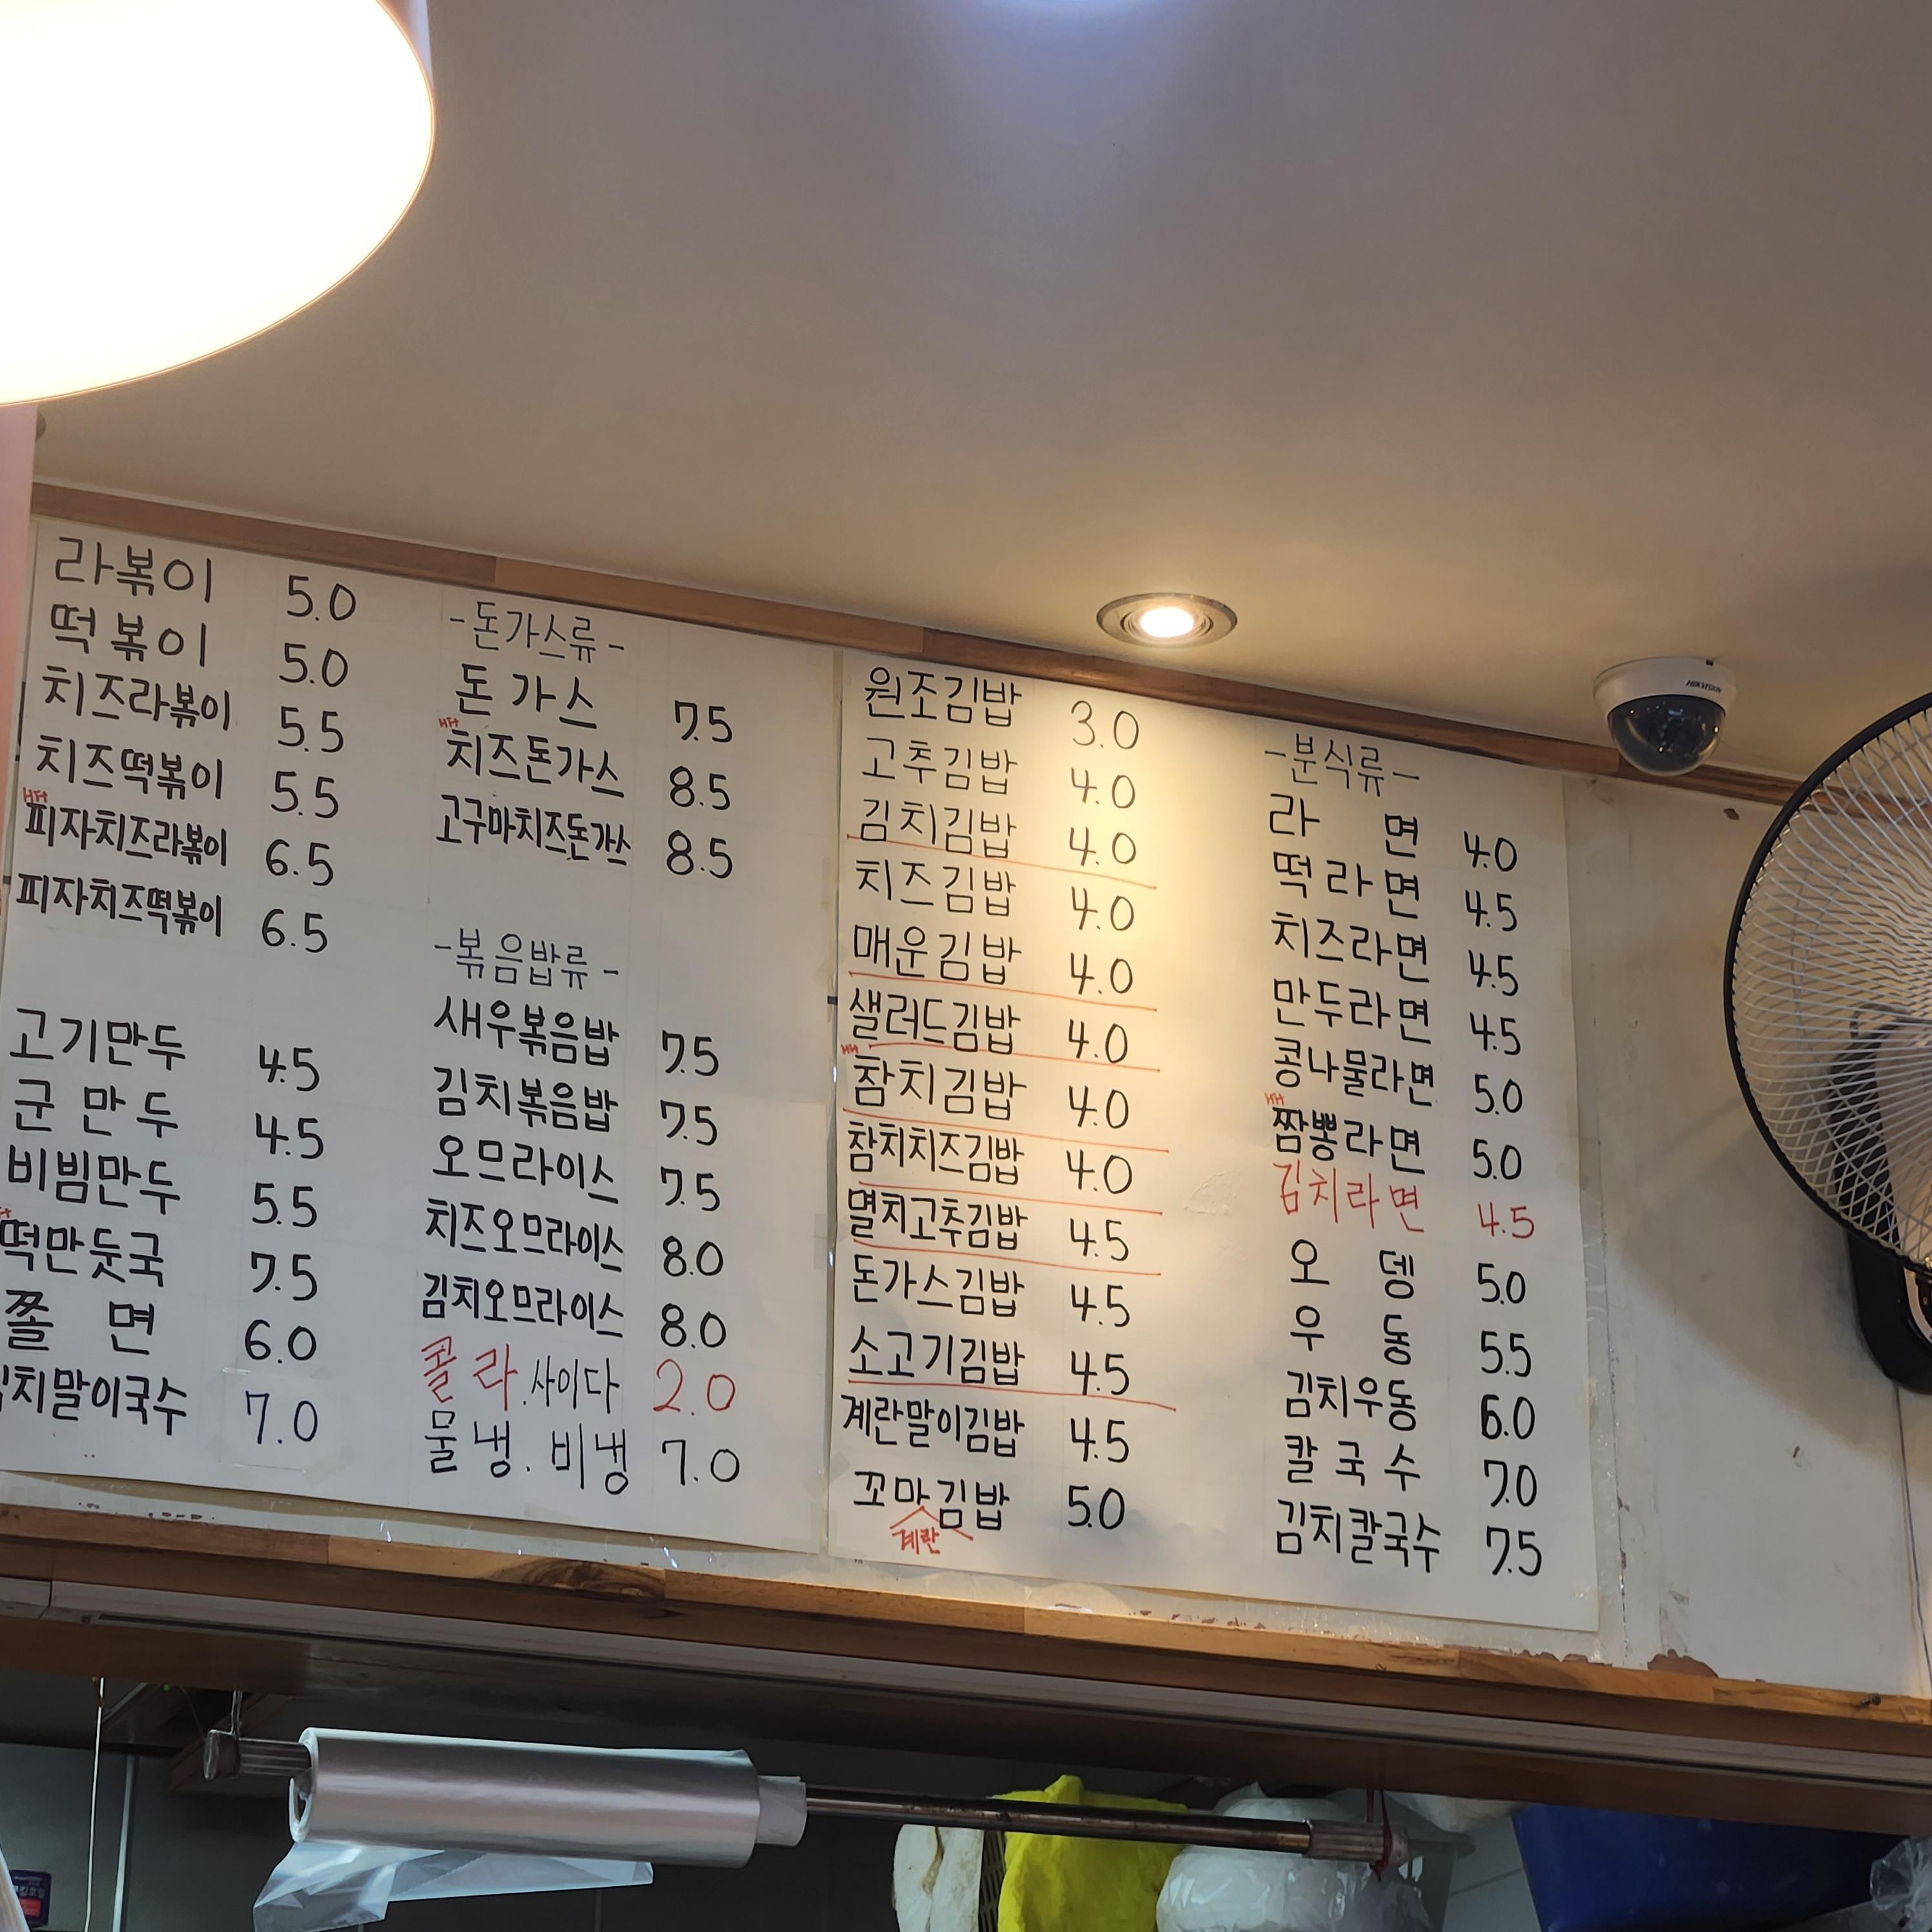 라볶이 5.0
떡볶이 5.0
치즈라볶이 5.5
치즈떡볶이 5.5
피자치즈라볶이 6.5
피자치즈떡볶이 6.5
고기만두 4.5
군만두 4.5
비빔만두 5.5
떡만둣국 7.5
쫄면 6.0
김치말이국수 7.0
-돈가스류-
돈가스 7.5
치즈돈가스 8.5
고구마치즈돈가스 8.5
-볶음밥류-
새우볶음밥 7.5
김치볶음밥 7.5
오므라이스 7.5
치즈오므라이스 8.0
김치오므라이스 8.0
콜라.사이다 2.0
물냉.비냉 7.0
원조김밥 3.0
고추김밥 4.0
김치김밥 4.0
치즈김밥 4.0
매운김밥 4.0
샐러드김밥 4.0
참치김밥 4.0
참치치즈김밥 4.0
멸치고추김밥 4.5
돈가스김밥 4.5
소고기김밥 4.5
계란말이김밥 4.5
꼬마김밥 5.0
계란
-분식류-
라면 4.0
떡라면 4.5
치즈라면 4.5
만두라면 4.5
콩나물라면 5.0
짬뽕라면 5.0
김치라면 4.5
오뎅 5.0
우동 5.5
김치우동 6.0
칼국수 7.0
김치칼국수 7.5
HIKVISION